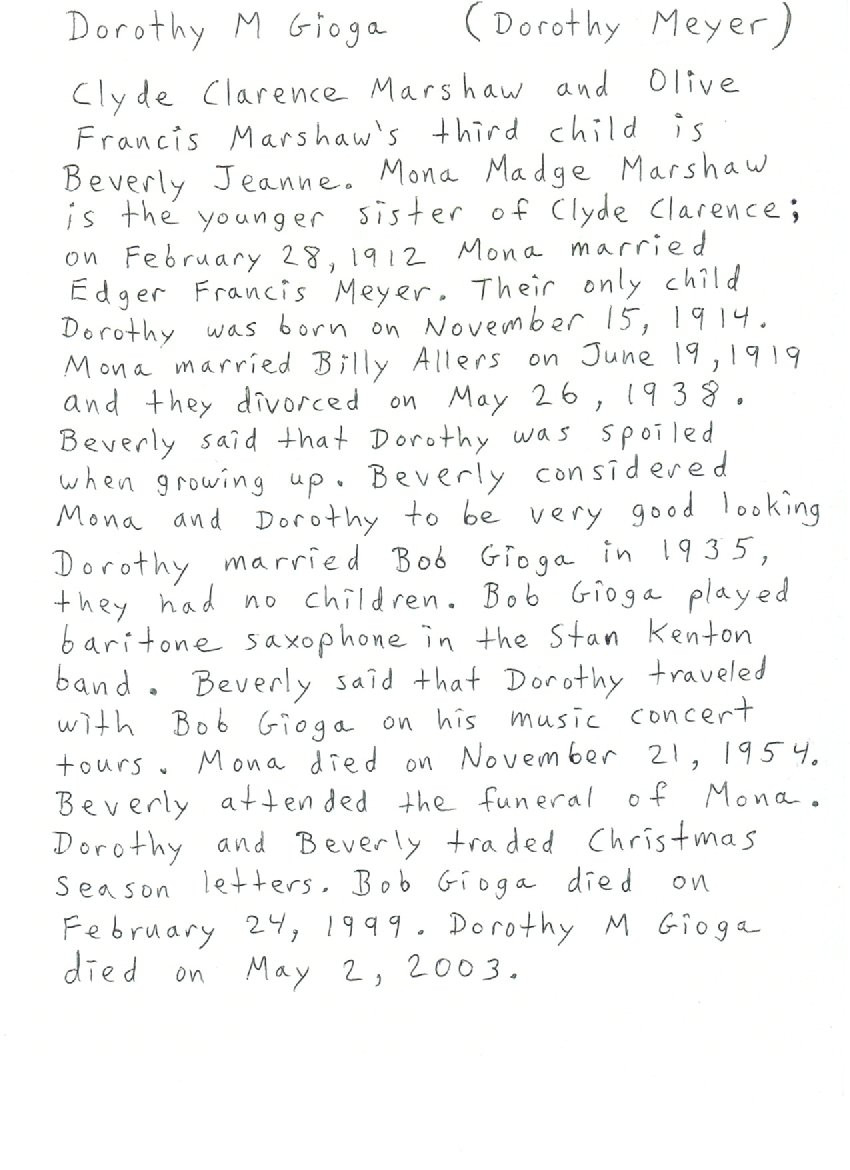 Dorothy M Gioga (Dorothy Meyer)
Clyde Clarence Marshaw and Olive
Francis Marshaw's third child is
Beverly Jeanne. Mona Madge Marshaw
is the younger sister of Clyde Clarence;
on February 28, 1912 Mona married
Edger Francis Meyer. Their only child
Dorothy was born on November 15, 1914.
Mona married Billy Allers on June 19, 1919
and they divorced on May 26, 1938.
Beverly said that Dorothy was spoiled
when growing up. Beverly considered
Mona and Dorothy to be very good looking
Dorothy married Bob Gioga in 1935,
they had no children. Bob Gioga played
baritone saxophone in the Stan Kenton
band. Beverly said that Dorothy traveled
with Bob Gioga on his music concert
tours. Mona died on November 21, 1954.
Beverly attended the funeral of Mona.
Dorothy and Beverly traded Christmas
Season letters. Bob Gioga died on
February 24, 1999. Dorothy M Gioga
died on May 2, 2003.